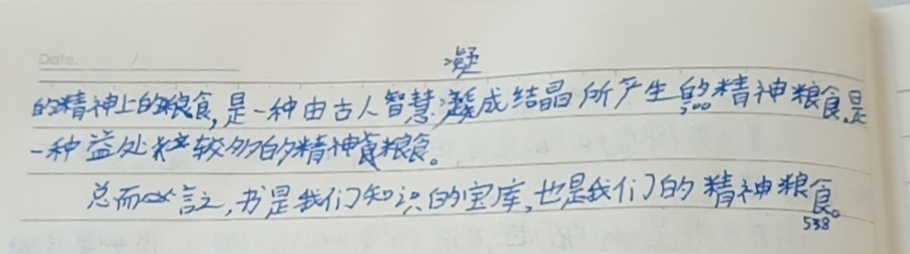 Date. /
凝
的精神上的粮食,是一种由古人智慧凝成结晶所产生的精神粮食,是
500
一种益处较多的精神粮食。
总而言之,书是我们知识的宝库,也是我们的精神粮食。
538